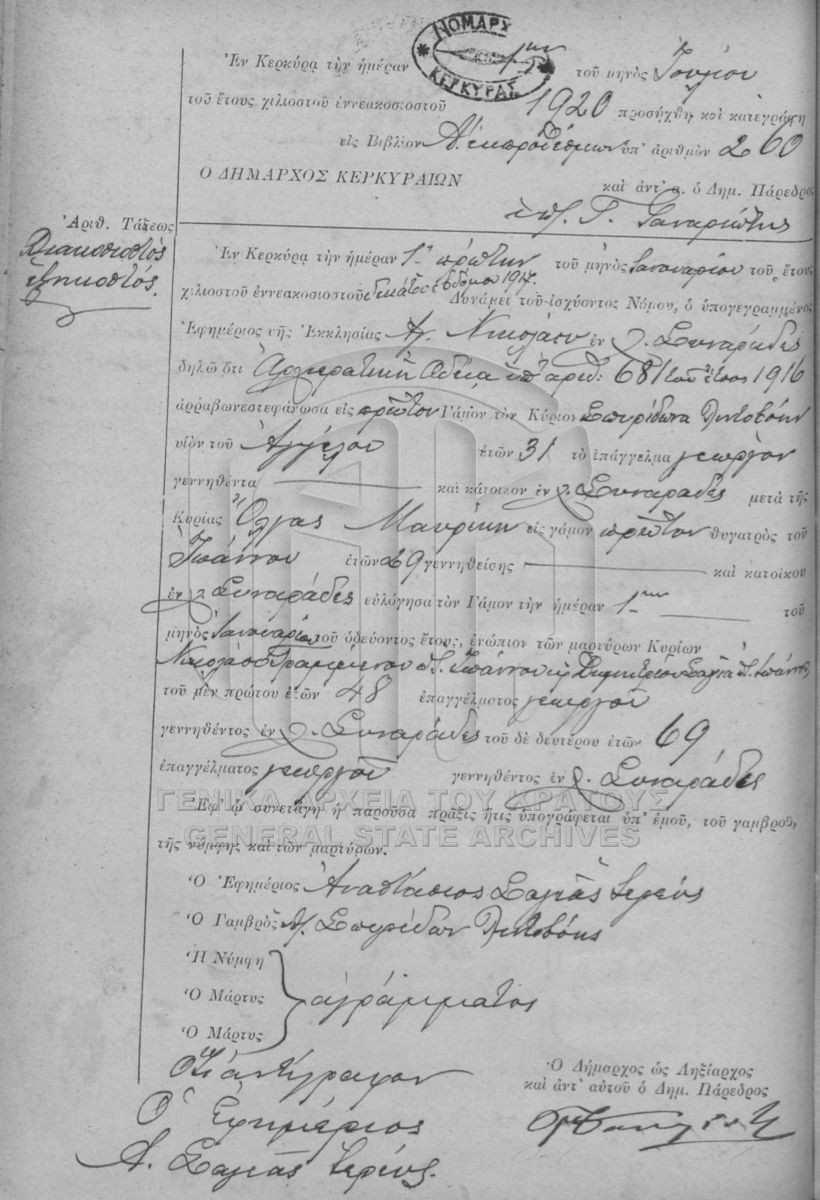 ΝΟΜΑΡΧ
ΚΕΡΚΥΡΑΣ
Ἐν Κερκύρᾳ τὴν ἡμέραν 1ην τοῦ μηνὸς Ἰουνίου
τοῦ ἔτους χιλιοστοῦ ἐννεακοσιοστοῦ 1920 προσήχθη καὶ κατεγράφη
εἰς Βιβλίον Α. ἐκπροθέσμων ὑπ' ἀριθμὸν 260
Ο ΔΗΜΑΡΧΟΣ ΚΕΡΚΥΡΑΙΩΝ
καὶ ἀντ' α. ὁ Δημ. Πάρεδρος
Ἀριθ. Τάξεως
Διακοσιοστός
Ἐν Κερκύρᾳ τὴν ἡμέραν 1η πρώτην τοῦ μηνὸς Ἰανουαρίου τοῦ ἔτους
χιλιοστοῦ ἐννεακοσιοστοῦ δεκάτου ἑβδόμου 1917. Δυνάμει τοῦ ἰσχύοντος Νόμου, ὁ ὑπογεγραμμένος
Ἐφημέριος τῆς Ἐκκλησίας Ἁγ. Νικολάου ἐν χ. Συναράδες
δηλῶ ὅτι Ἀρχιερατικῇ Ἀδείᾳ ὑπ' ἀριθ: 681 τοῦ ἔτους 1916
ἀρραβωνεστεφάνωσα εἰς πρῶτον Γάμον τὸν Κύριον Σπυρίδωνα
υἱὸν τοῦ Ἀγγέλου ἐτῶν 31 τὸ ἐπάγγελμα γεωργὸν
γεννηθέντα καὶ κάτοικον ἐν χ. Συναράδες μετὰ τῆς
Κυρίας Ὄλγας Μαυρίκη εἰς γάμον πρῶτον θυγατρὸς τοῦ
Ἰωάννου ἐτῶν 29 γεννηθείσης καὶ κατοίκου
ἐν χ. Συναράδες εὐλόγησα τὸν Γάμον τὴν ἡμέραν 1ην τοῦ
μηνὸς Ἰανουαρίου τοῦ ὁδεύοντος ἔτους, ἐνώπιον τῶν μαρτύρων Κυρίων
Νικολάου Γραμμένου τ. Ἰωάννου κ. Δημητρίου Σαγιᾶ τ. Ἰωάννου
τοῦ μὲν πρώτου ἐτῶν 48 ἐπαγγέλματος γεωργοῦ
γεννηθέντος ἐν χ. Συναράδες τοῦ δὲ δευτέρου ἐτῶν 69
ἐπαγγέλματος γεωργοῦ γεννηθέντος ἐν χ. Συναράδες
ΓΕΝΙΚΑ ΑΡΧΕΙΑ ΤΟΥ ΚΡΑΤΟΥΣ
GENERAL STATE ARCHIVES
Ἐφ' ᾧ συνετάγη ἡ παροῦσα πρᾶξις ἥτις ὑπογράφεται ὑπ' ἐμοῦ, τοῦ γαμβροῦ,
τῆς νύμφης καὶ τῶν μαρτύρων.
Ὁ Ἐφημέριος Ἀναστάσιος Σαγιᾶς Ἱερεύς
Ὁ Γαμβρὸς Σπυρίδων
Ἡ Νύμφη
Ὁ Μάρτυς ἀγράμματος
Ὁ Μάρτυς
Ὅτι ἀντίγραφον
Ὁ Ἐφημέριος
Α. Σαγιᾶς Ἱερεύς.
Ὁ Δήμαρχος ὡς Ληξίαρχος
καὶ ἀντ' αὐτοῦ ὁ Δημ. Πάρεδρος